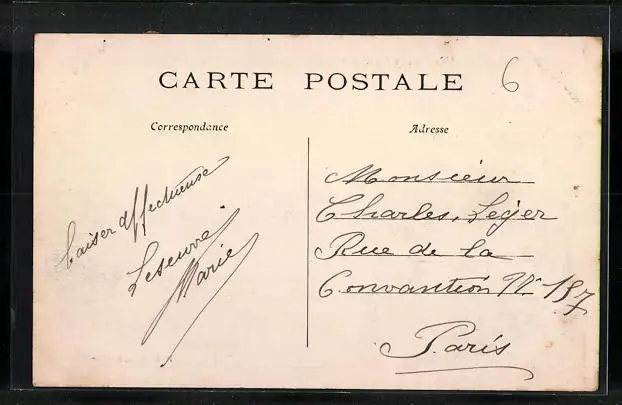 CARTE POSTALE
6
Correspondance
Adresse
baiser affectueuse
Leseurre
Marie
Monsieur
Charles, Leger
Rue de la
Convantion N° 187
Paris